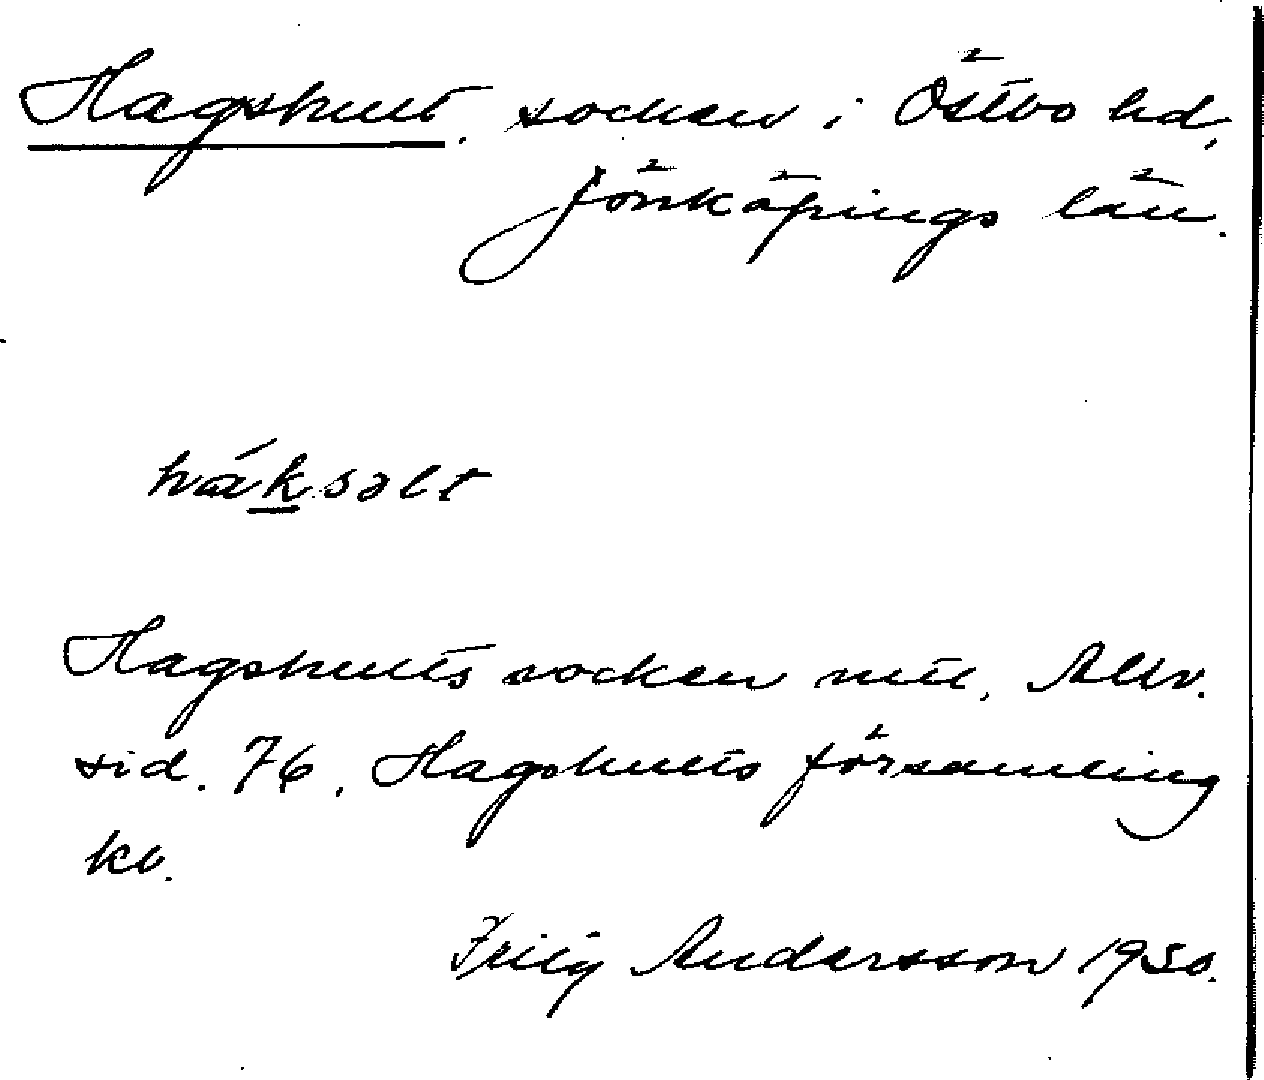 Hagshult. socken i Östbo hd,
Jönköpings län.
hák salt
Hagshults socken mtl. Allv.
sid. 76. Hagshults församling
kb.
Andersson 1930.